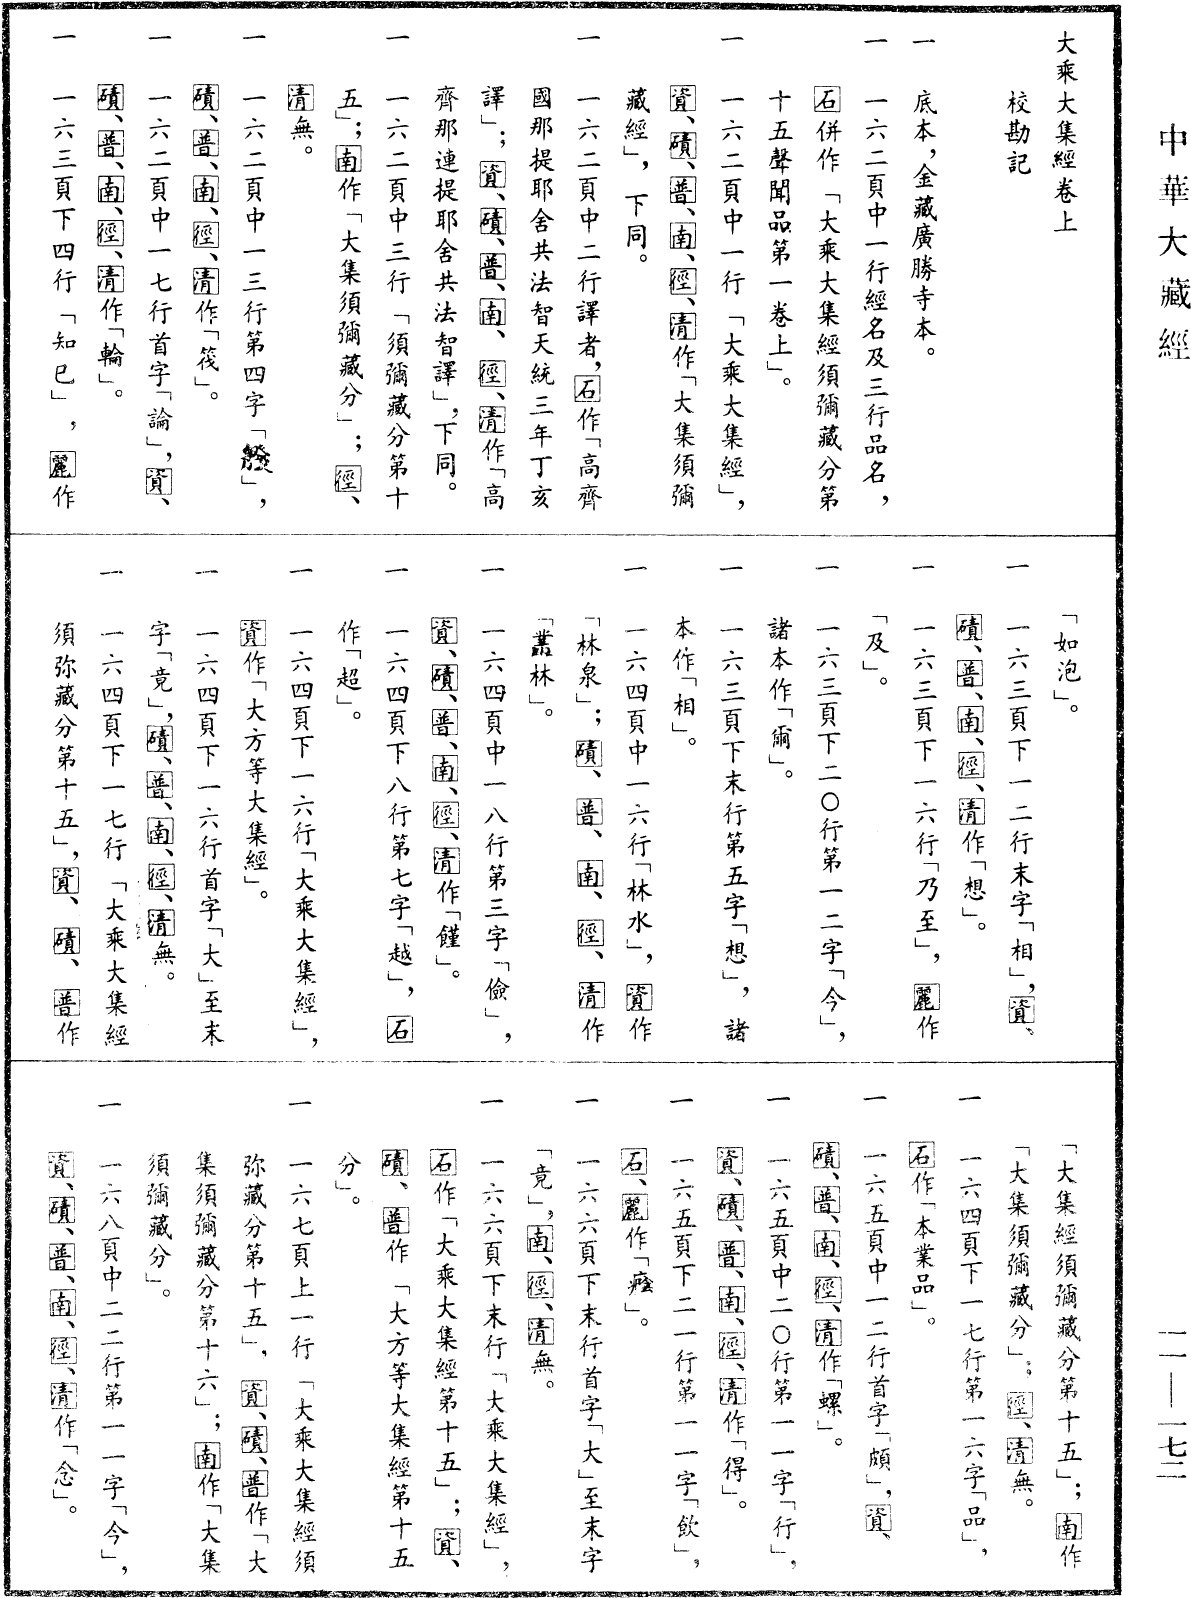 中華大藏經
大乘大集經卷上
校勘記
一 底本，金藏廣勝寺本。
一 一六二頁中一行經名及三行品名，
石併作「大乘大集經須彌藏分第
十五聲聞品第一卷上」。
一 一六二頁中一行「大乘大集經」，
資、磧、普、南、徑、清作「大集須彌
藏經」，下同。
一 一六二頁中二行譯者，石作「高齊
國那提耶舍共法智天統三年丁亥
譯」；資、磧、普、南、徑、清作「高
齊那連提耶舍共法智譯」，下同。
一 一六二頁中三行「須彌藏分第十
五」；南作「大集須彌藏分」；徑、
清無。
一 一六二頁中一三行第四字「」，
磧、普、南、徑、清作「筏」。
一 一六二頁中一七行首字「論」，資、
磧、普、南、徑、清作「輪」。
一 一六三頁下四行「知已」，麗作
「如泡」。
一 一六三頁下一二行末字「相」，資、
磧、普、南、徑、清作「想」。
一 一六三頁下一六行「乃至」，麗作
「及」。
一 一六三頁下二〇行第一二字「今」，
諸本作「爾」。
一 一六三頁下末行第五字「想」，諸
本作「相」。
一 一六四頁中一六行「林水」，資作
「林泉」；磧、普、南、徑、清作
「叢林」。
一 一六四頁中一八行第三字「儉」，
資、磧、普、南、徑、清作「饉」。
一 一六四頁下八行第七字「越」，石
作「超」。
一 一六四頁下一六行「大乘大集經」，
資作「大方等大集經」。
一 一六四頁下一六行首字「大」至末
字「竟」，磧、普、南、徑、清無。
一 一六四頁下一七行「大乘大集經
須弥藏分第十五」，資、磧、普作
「大集經須彌藏分第十五」；南作
「大集須彌藏分」；徑、清無。
一 一六四頁下一七行第一六字「品」，
石作「本業品」。
一 一六五頁中一二行首字「頗」，資、
磧、普、南、徑、清作「螺」。
一 一六五頁中二〇行第一一字「行」，
資、磧、普、南、徑、清作「得」。
一 一六五頁下二一行第一一字「飲」，
石、麗作「癊」。
一 一六六頁下末行首字「大」至末字
「竟」，南、徑、清無。
一 一六六頁下末行「大乘大集經」，
石作「大乘大集經第十五」；資、
磧、普作「大方等大集經第十五
分」。
一 一六七頁上一行「大乘大集經須
弥藏分第十五」，資、磧、普作「大
集須彌藏分第十六」；南作「大集
須彌藏分」。
一 一六八頁中二二行第一一字「今」，
資、磧、普、南、徑、清作「念」。
一一——一七二